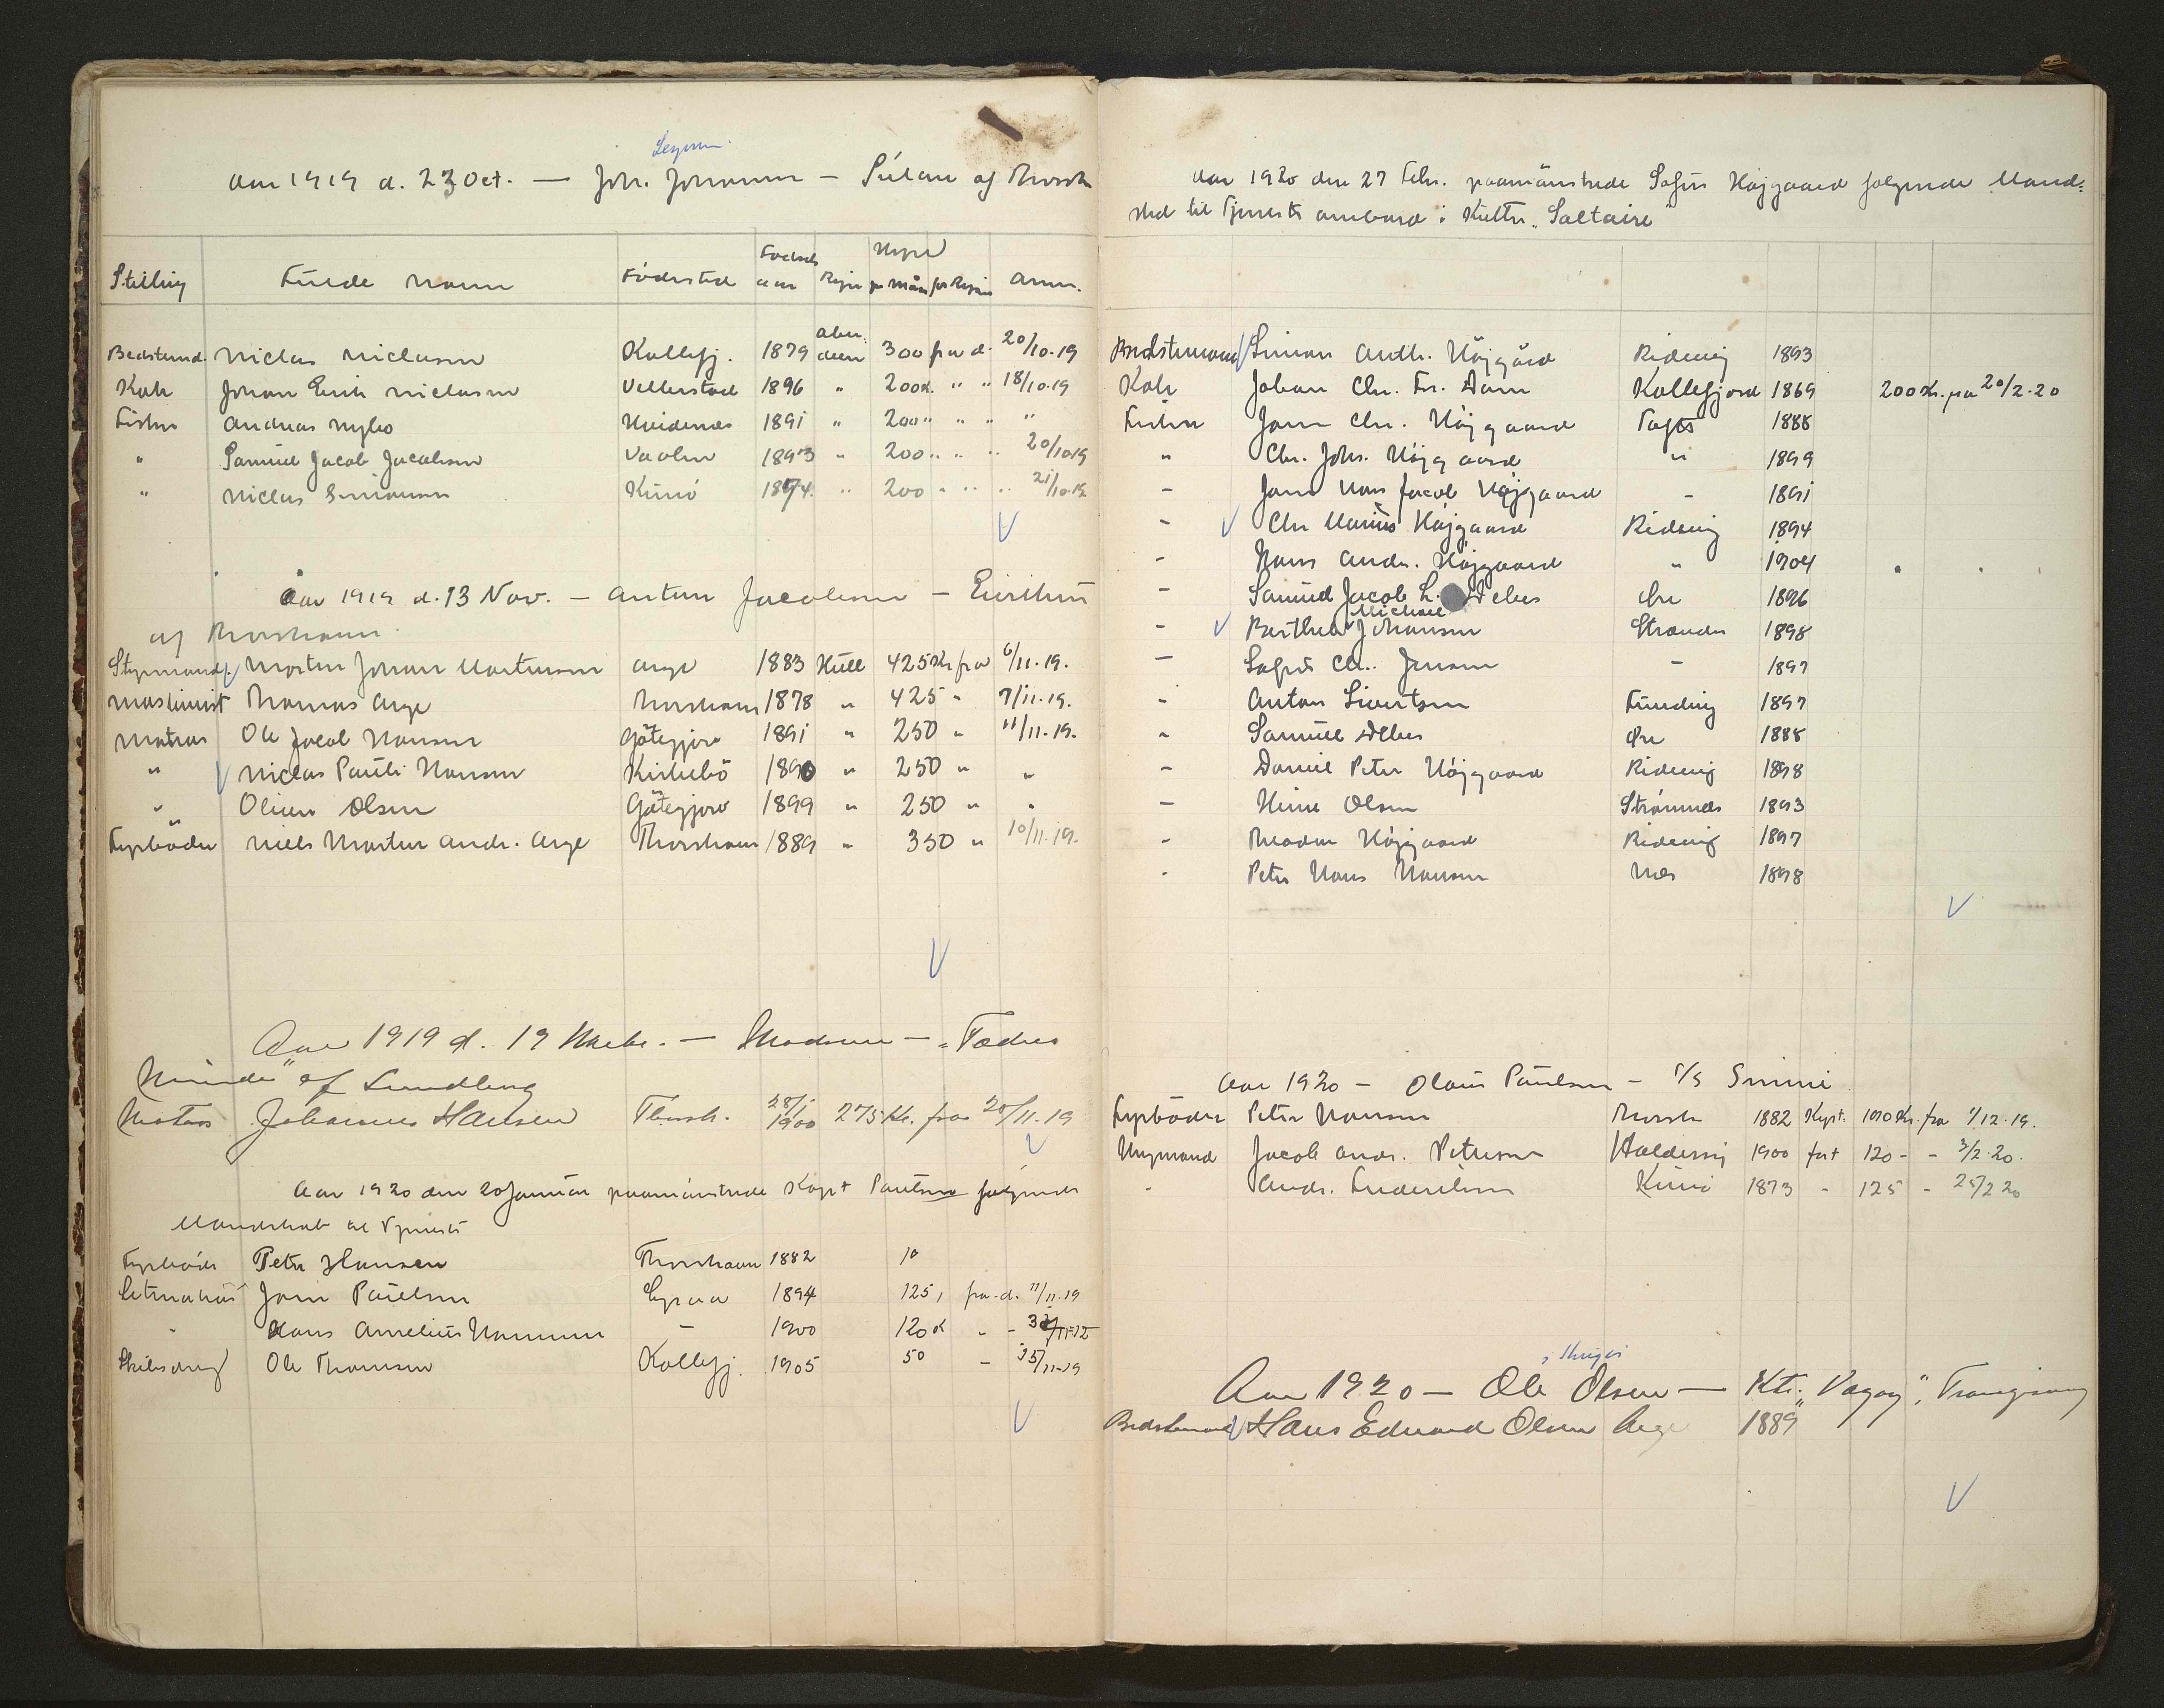 Aar 1919 d. 23 Oct. — Joh. Johannesen — Súlan af Thorsh
Stilling Fulde Navn Födested Födsels aar Rejse Hyre pr Mån for Rejsen Anm.
Bedstemd. Niclas Niclasen Kollefj. 1879 Aberdeen 300 fra d. 20/10.19
Kok Johan Erik Niclasen Velbestad 1896 " 200 K. " " 18/10.19
Fisker Andreas Nybo Hvidenæs 1891 " 200 " " " "
" Samuel Jacob Jacobsen 1893 " 200 " " " 20/10.19
" Niclas Simonsen Kunö 1874 " 200 " " " 21/10.19
Aar 1919 d. 13 Nov. — Anton Jacobsen —
af Thorshavn
Styrmand Morten Johan Mortensen Arge 1883 Hull 425 Kr fra 6/11.19.
Maskinist Thomas Arge Thorshavn 1878 " 425 " 7/11.19.
Matros Ole Jacob Hansen Götegjov 1891 " 250 " 11/11.19.
" Niclas Pauli Hansen Kirkebö 1890 " 250 " "
" Oliver Olsen Götegjov 1899 " 250 " "
Fyrböder Niels Morten Andr. Arge Thorshavn 1889 " 350 " 10/11.19.
Aar 1919 d. 19 Novbr. — Madsen — "Fædres
Minde" af
Matros Johannes Hansen Thorsh. 28/1 1900 275 Kr. fra 20/11.19
Aar 1920 den 20 Januar paamönstrede Kapt Paulsen følgende
Mandskab til Tjeneste
Fyrböder Peter Hansen Thorshavn 1882
Letmatros Joen Paulsen 1894 125, fra d. 11/11.19
- Hans Amelius Hammer - 1900 120 K " -
Skibsdreng Ole Thomsen Kollefj. 1905 50 - 15/11-19
Aar 1920 den 27 Febr. paamönstrede Sofus Højgaard følgende Mand=
skab til Tjeneste ombord i Kutter "Saltaire"
Bedstemand Simon Anth. Højgård Ridevig 1893
Kok Johan Chr. Fr. Dam Kollefjord 1869 200 Kr. fra 20/2.20
Fisker Joen Chr. Højgaard Toftö 1888
" Chr. Johs. Højgaard " 1899
- Joen Hans Jacob Højgaard - 1891
- Chr Marius Højgaard Ridevig 1894
- Hans Andr. Højgaard " 1904
- Samuel Jacob L. Debes Øre 1896
- Barthea Michael Johansen Strænder 1898
- Sofus Chr. Jensen - 1897
- Anton Sivertsen Funding 1897
- Samuel Debes Øre 1888
- Daniel Peter Højgaard Ridevig 1898
- Olsen Strømnæs 1893
- Theodor Højgaard Ridevig 1897
- Peter Hans Hansen Næs 1898
Aar 1920 — Olaus Paulsen — S/S Smiril
Fyrböder Peter Hansen Thorsh 1882 Kyst. 100 Kr. fra 1/12.19.
Ungmand Jacob Andr. Petersen Haldersvig 1900 fart 120 - - 3/2.20.
- Andr. Frederiksen Kunö 1873 - 125 - 25/2 20
Aar 1920 — Ole Olsen — Ktr. "Vagøy", Trangisvaag
Bedstemand Hans Edvard Olsen Arge 1889